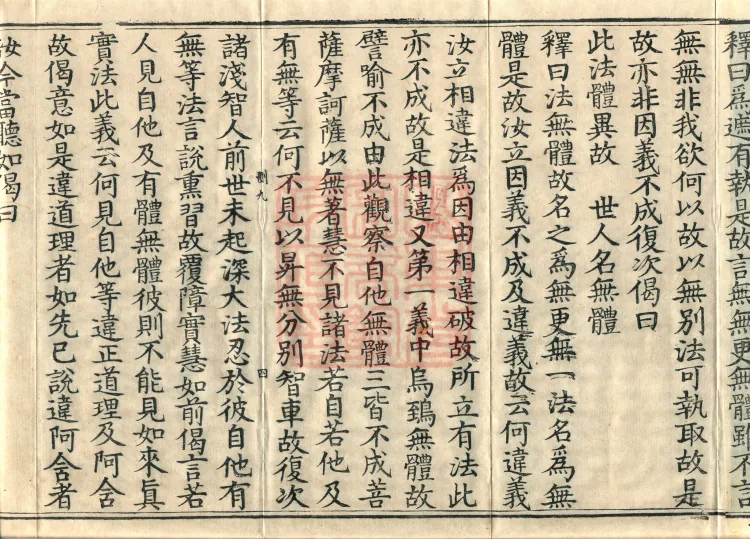 釋曰爲遮有執是故言無無更無體雖不言
無無非我欲何以故以無別法可執取故是
故亦非因義不成復次偈曰
此法體異故　世人名無體
釋曰法無體故名之爲無更無一法名爲無
體是故汝立因義不成及違義故云何違義
汝立相違法爲因由相違破故所立有法此
亦不成故是相違又第一義中烏鵄無體故
譬喻不成由此觀察自他無體三皆不成菩
薩摩訶薩以無著慧不見諸法若自若他及
有無等云何不見以昇無分別智車故復次
剻九
四
諸淺智人前世未起深大法忍於彼自他有
無等法言說熏習故覆障實慧如前偈言若
人見自他及有體無體彼則不能見如來眞
實法此義云何見自他等違正道理及阿含
故偈意如是違道理者如先已說違阿含者
汝今當聽如偈曰